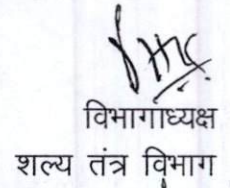 विभागाध्यक्ष
शल्य तंत्र विभाग